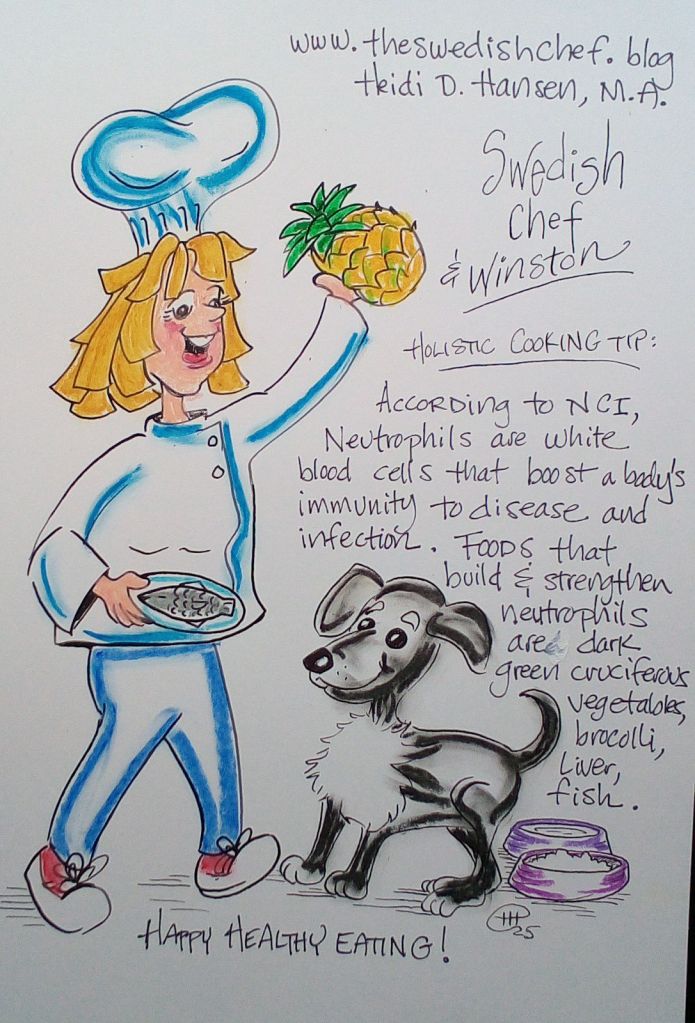 www.theswedishchef.blog
Heidi D. Hansen, M.A.
Swedish
Chef
& Winston
HOLISTIC COOKING TIP:
ACCORDING to NCI,
Neutrophils are white
blood cells that boost a body's
immunity to disease and
infection. FOODS that
build & strengthen
neutrophils
are dark
green cruciferous
vegetables,
brocolli,
Liver,
fish.
HAPPY HEALTHY EATING!
25